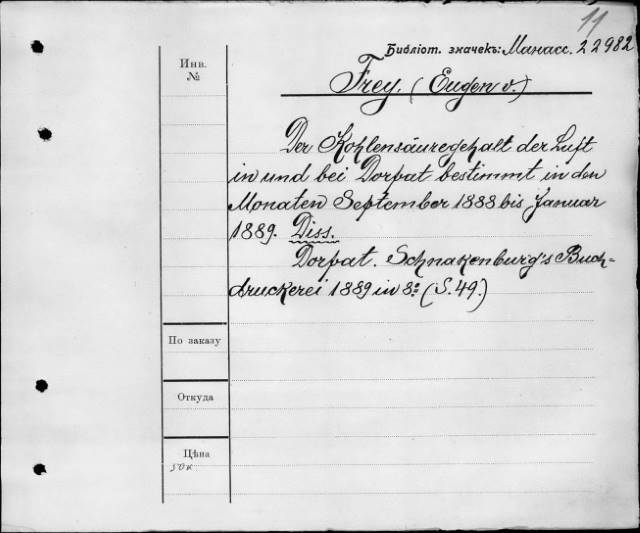 11
Библіот. значекъ: Манасс. 22982
Инв.
№
Frey. (Eugen v.)
Der Kohlensäuregehalt der Luft
in und bei Dorpat bestimmt in den
Monaten September 1888 bis Januar
1889. Diss.
Dorpat. Schnakenburg's Buch-
druckerei 1889 in 8º (S. 49.)
По заказу
Откуда
Цѣна
50 к